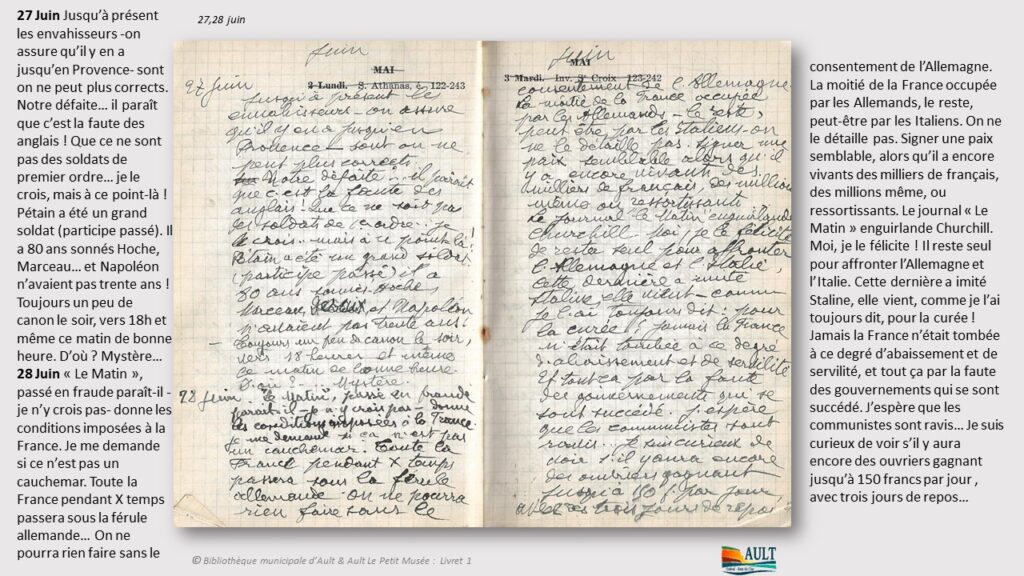 27 Juin Jusqu’à présent
les envahisseurs -on
assure qu’il y en a
jusqu’en Provence- sont
on ne peut plus corrects.
Notre défaite… il paraît
que c’est la faute des
anglais ! Que ce ne sont
pas des soldats de
premier ordre… je le
crois, mais à ce point-là !
Pétain a été un grand
soldat (participe passé). Il
a 80 ans sonnés Hoche,
Marceau… et Napoléon
n’avaient pas trente ans !
Toujours un peu de
canon le soir, vers 18h et
même ce matin de bonne
heure. D’où ? Mystère…
28 Juin « Le Matin »,
passé en fraude paraît-il -
je n’y crois pas- donne les
conditions imposées à la
France. Je me demande
si ce n’est pas un
cauchemar. Toute la
France pendant X temps
passera sous la férule
allemande… On ne
pourra rien faire sans le
27,28 juin
juin
MAI
2 Lundi. S. Athanas, é. 122-243
27 juin
Jusqu'à présent les
envahisseurs - on assure
qu'il y en a jusqu'en
Provence - sont on ne
peut plus corrects.
Notre défaite... il paraît
que c'est la faute des
anglais! Que ce ne soit pas
des soldats de 1er ordre... je
le crois.. mais à ce point là!
Pétain a été un grand soldat
(participe passé) il a
80 ans sonnés Hoche,
Marceau, et Napoléon
n'avaient pas trente ans!
Toujours un peu de canon le soir,
vers 18 heures et même
ce matin de bonne heure.
D'où? Mystère.
28 juin. "Le Matin", passé en fraude
paraît-il - je n'y crois pas - donne
les conditions imposées à la France.
je me demande si ça n'est pas
un cauchemar. Toute la
France pendant X temps
passera sous la férule
allemande. On ne pourra
rien faire sans le
juin
MAI
3 Mardi. Inv. Se Croix 123-242
consentement de l'Allemagne
La moitié de la France occupée
par les Allemands - le reste,
peut être, par les Italiens - on
ne le détaille pas. signer une
paix semblable alors qu'il
y a encore vivants des
milliers de français, des millions
même ou ressortissants
Le journal "Le Matin" enguirlande
Churchill. Moi, je le félicite
de rester seul pour affronter
l'Allemagne et l'Italie,
cette dernière a imité
Staline, elle vient - comme
je l'ai toujours dit: pour
la curée! jamais la France
n'était tombée à ce degré
d'abaissement et de servilité
Et tout ça par la faute
des gouvernements qui se
sont succédé. j'espère
que les communistes sont
ravis... Je suis curieux de
voir s'il y aura encore
des ouvriers gagnant
jusqu'à 150 f. par jour,
avec trois jours de repos
consentement de l’Allemagne.
La moitié de la France occupée
par les Allemands, le reste,
peut-être par les Italiens. On ne
le détaille pas. Signer une paix
semblable, alors qu’il a encore
vivants des milliers de français,
des millions même, ou
ressortissants. Le journal « Le
Matin » enguirlande Churchill.
Moi, je le félicite ! Il reste seul
pour affronter l’Allemagne et
l’Italie. Cette dernière a imité
Staline, elle vient, comme je l’ai
toujours dit, pour la curée !
Jamais la France n’était tombée
à ce degré d’abaissement et de
servilité, et tout ça par la faute
des gouvernements qui se sont
succédé. J’espère que les
communistes sont ravis… Je suis
curieux de voir s’il y aura
encore des ouvriers gagnant
jusqu’à 150 francs par jour ,
avec trois jours de repos…
© Bibliothèque municipale d’Ault & Ault Le Petit Musée : Livret 1
AULT